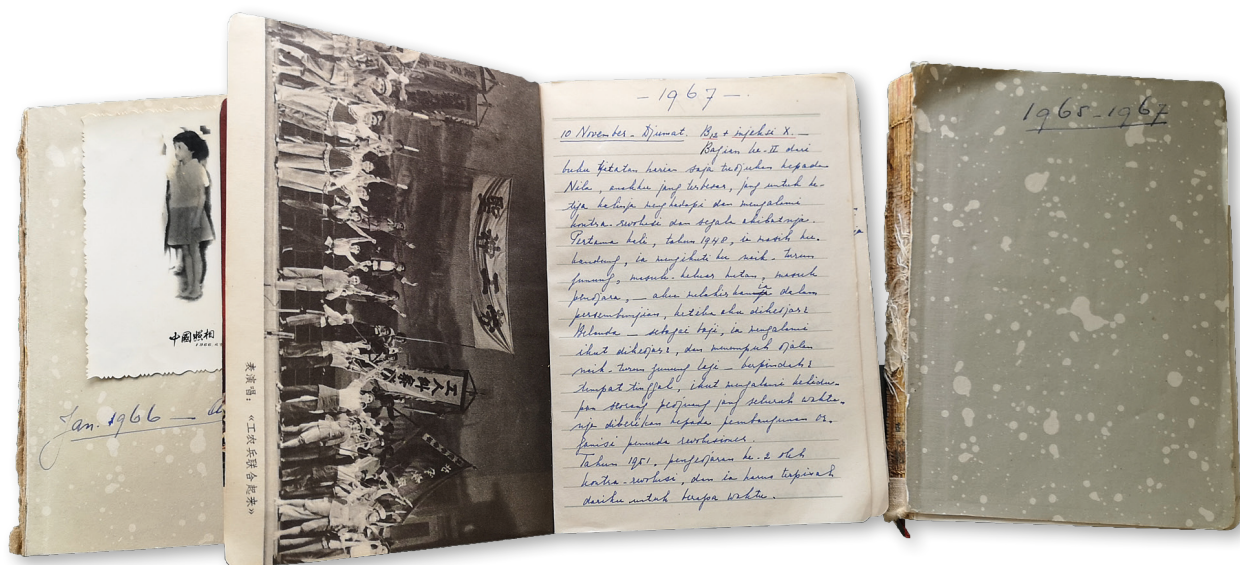 中國照相
Jan. 1966 —
表演唱：《工农兵联合起来》
- 1967 -
10 November - Djumat. B12 + injeksi X. —
Bagian ke-II dari
buku tjatatan harian saja tudjukan kepada
Nilu, anakku jang terbesar, jang untuk ke-
tiga kalinja menghadapi dan mengalami
kontra-revolusi dan segala akibatnja.
Pertama kali, tahun 1948, ia masih ku-
kandung, ia mengikuti ku naik-turun
gunung, masuk-keluar hutan, masuk
pendjara, — aku melahirkannja dalam
persembunjian, ketika aku dikedjar2
Belanda - sebagai baji, ia mengalami
ikut dikedjar2, dan menempuh djalan
naik-turun gunung lagi - berpindah2
tempat tinggal, ikut mengalami kehidu-
pan seorang pedjuang jang seluruh waktu-
nja diberikan kepada pembangunan or-
ganisi pemuda revolusioner.
Tahun 1951, pengedjaran ke-2 oleh
kontra-revolusi, dan ia harus terpisah
dariku untuk berapa waktu.
1965-1967